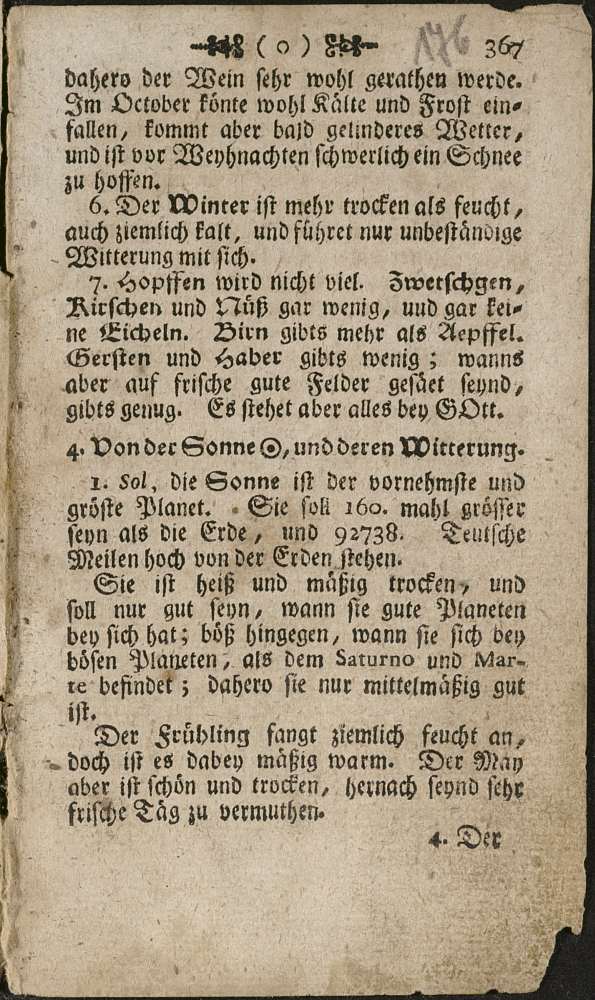 ( o ) 176 367
dahero der Wein sehr wohl gerathen werde.
Im October könte wohl Kälte und Frost ein-
fallen, kommt aber bald gelinderes Wetter,
und ist vor Weyhnachten schwerlich ein Schnee
zu hoffen.
6. Der Winter ist mehr trocken als feucht,
auch ziemlich kalt, und führet nur unbeständige
Witterung mit sich.
7. Hopffen wird nicht viel. Zwetschgen,
Kirschen und Nüß gar wenig, uud gar kei-
ne Eicheln. Birn gibts mehr als Aepffel.
Gersten und Haber gibts wenig; wanns
aber auf frische gute Felder gesäet seynd,
gibts genug. Es stehet aber alles bey GOtt.
4. Von der Sonne ☉, und deren Witterung.
1. Sol, die Sonne ist der vornehmste und
gröste Planet. Sie soll 160. mahl grösser
seyn als die Erde, und 92738. Teutsche
Meilen hoch von der Erden stehen.
Sie ist heiß und mäßig trocken, und
soll nur gut seyn, wann sie gute Planeten
bey sich hat; böß hingegen, wann sie sich bey
bösen Planeten, als dem Saturno und Mar-
te befindet; dahero sie nur mittelmäßig gut
ist.
Der Frühling fangt ziemlich feucht an,
doch ist es dabey mäßig warm. Der May
aber ist schön und trocken, hernach seynd sehr
frische Täg zu vermuthen.
4. Der